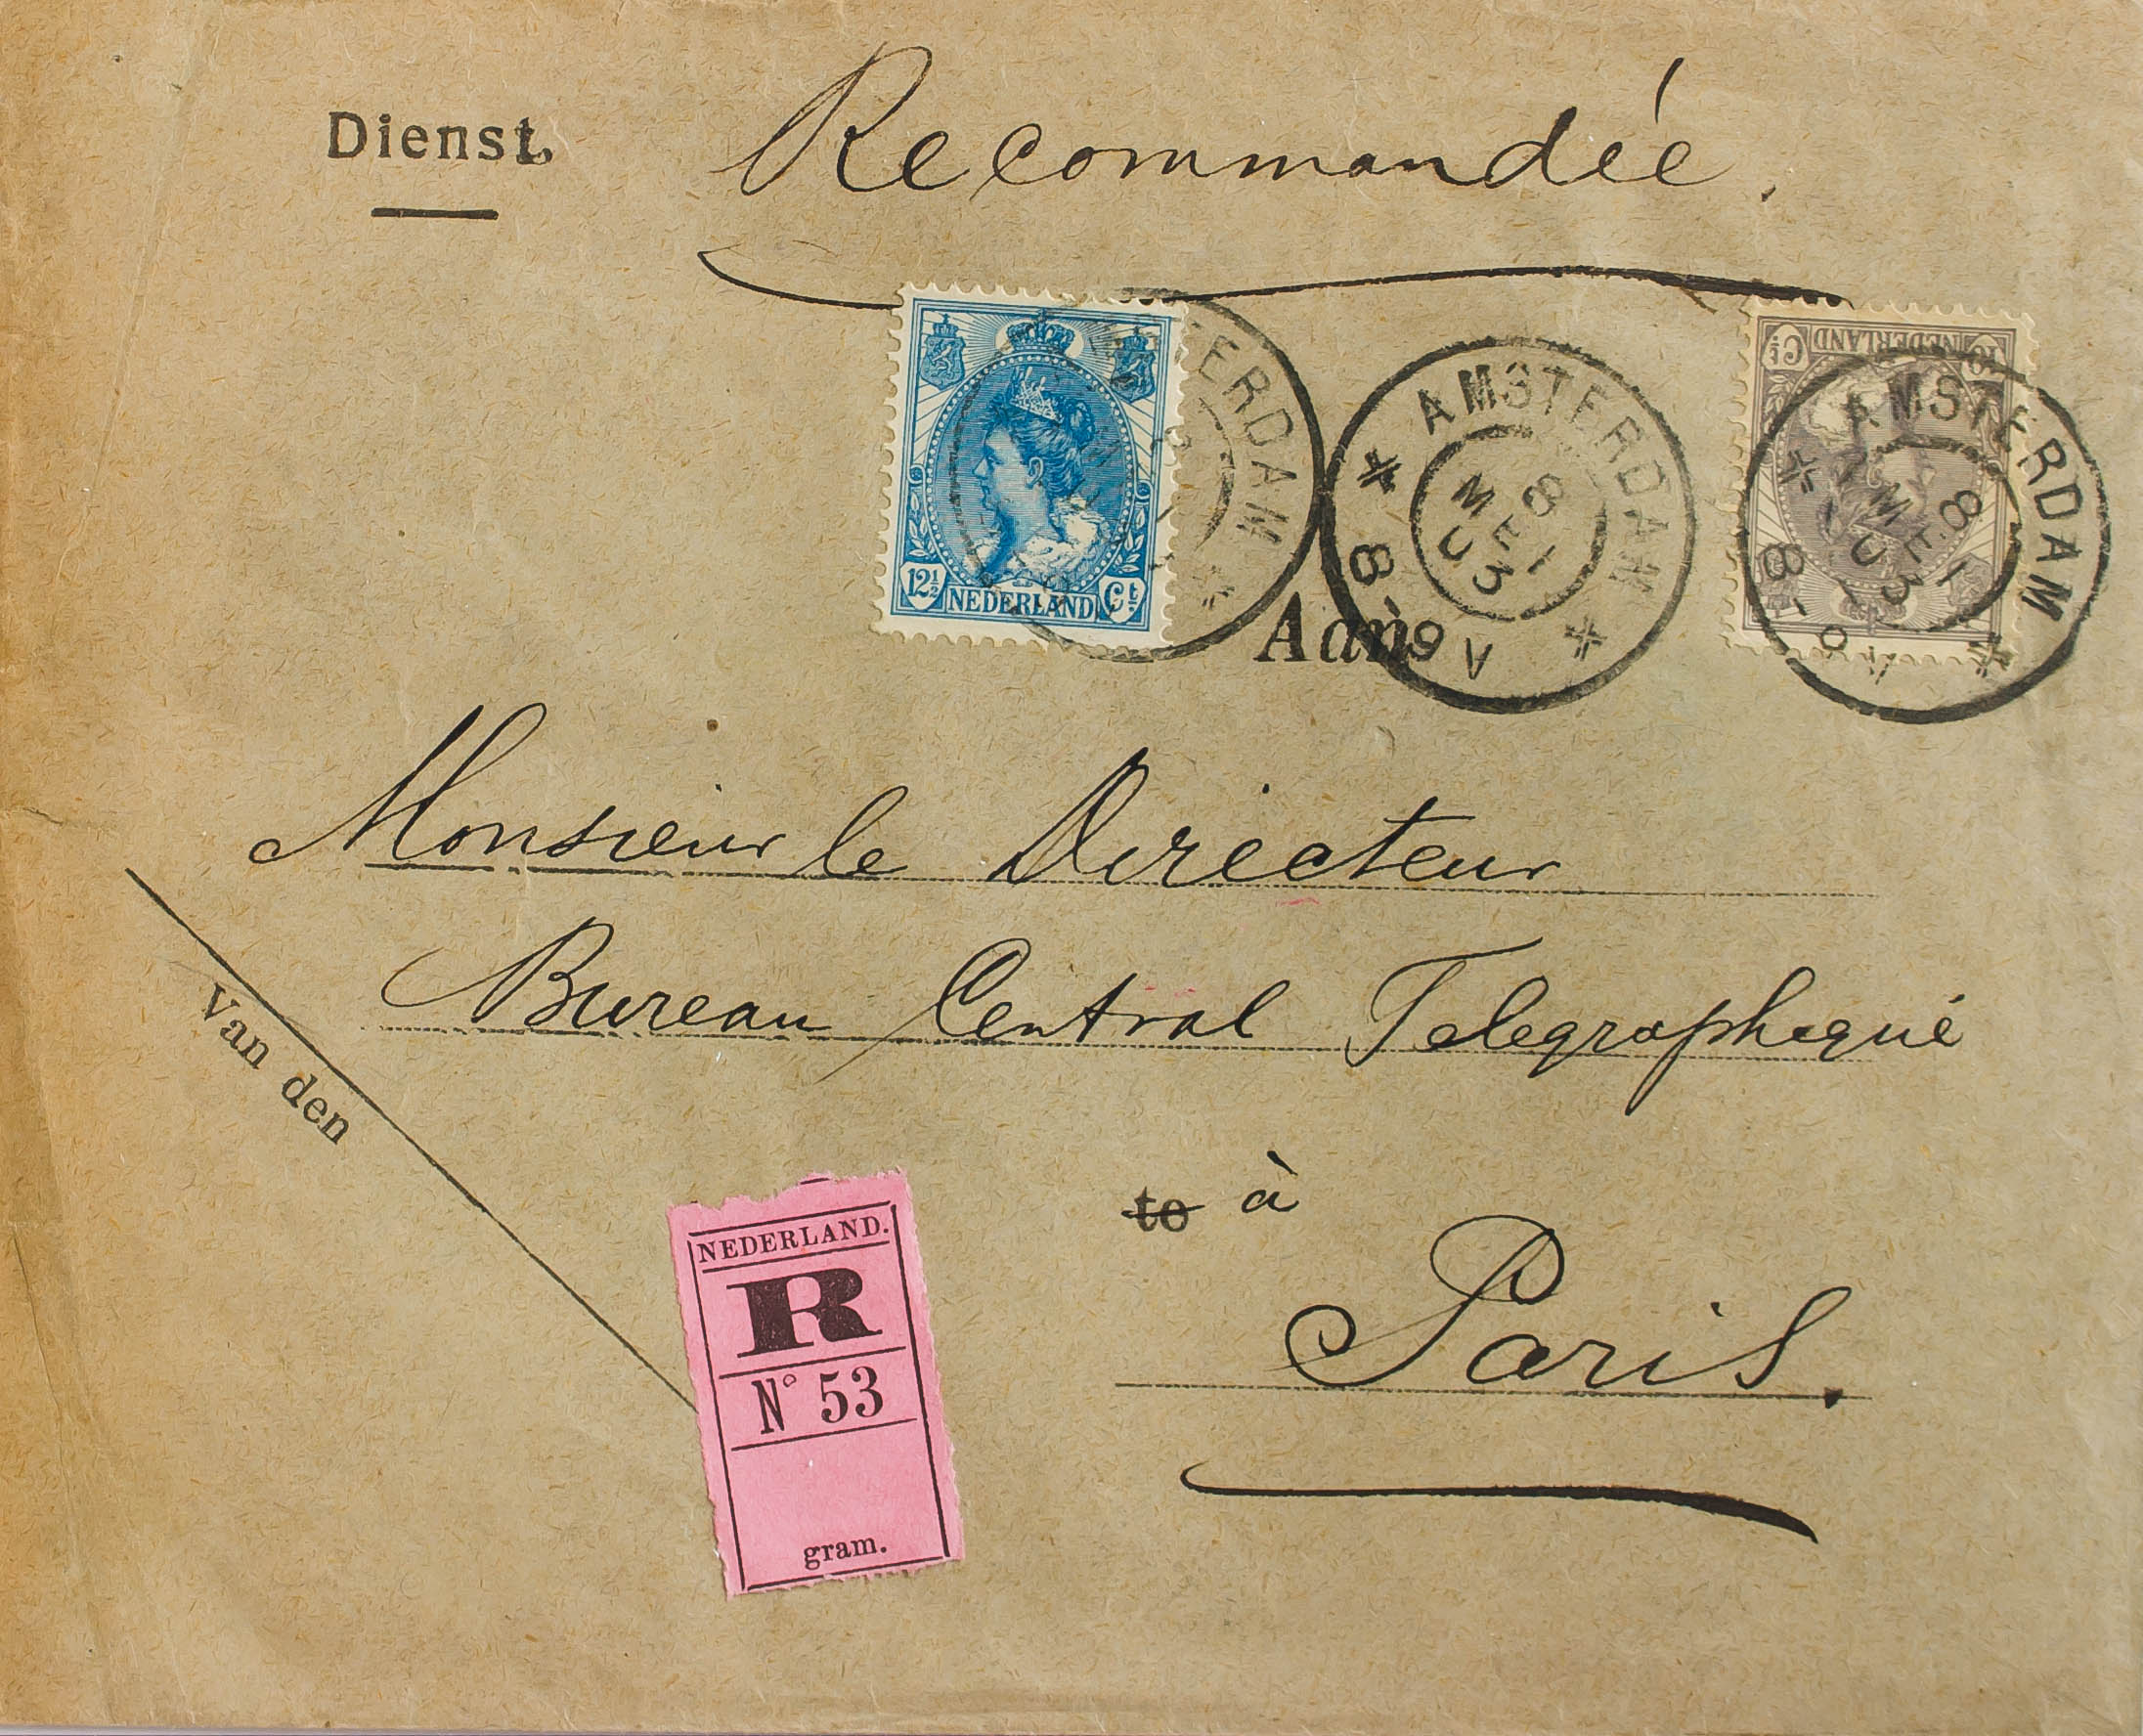 Dienst.
Recommandée.
NEDERLAND
12½ NEDERLAND Ct
AMSTERDAM
AMSTERDAM
8 MEI 03
8-9 V
AMSTERDAM
8 MEI 03
8-9 V
Aan
Monsieur le Directeur
Bureau Central Telegraphique
van den
te à
Paris.
NEDERLAND.
R
N° 53
gram.